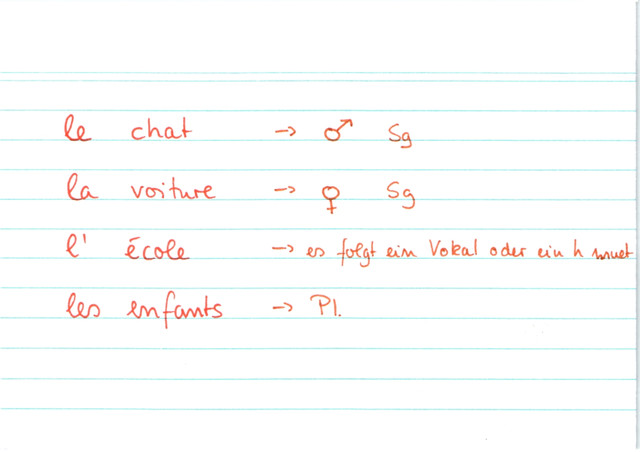 le chat → ♂ Sg
la voiture → ♀ Sg
l' école → es folgt ein Vokal oder ein h muet
les enfants → Pl.